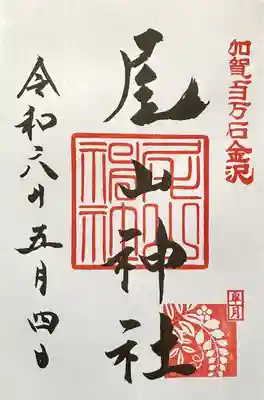 加賀百万石金沢
尾山神社
尾山神社
皐月
令和六年五月四日